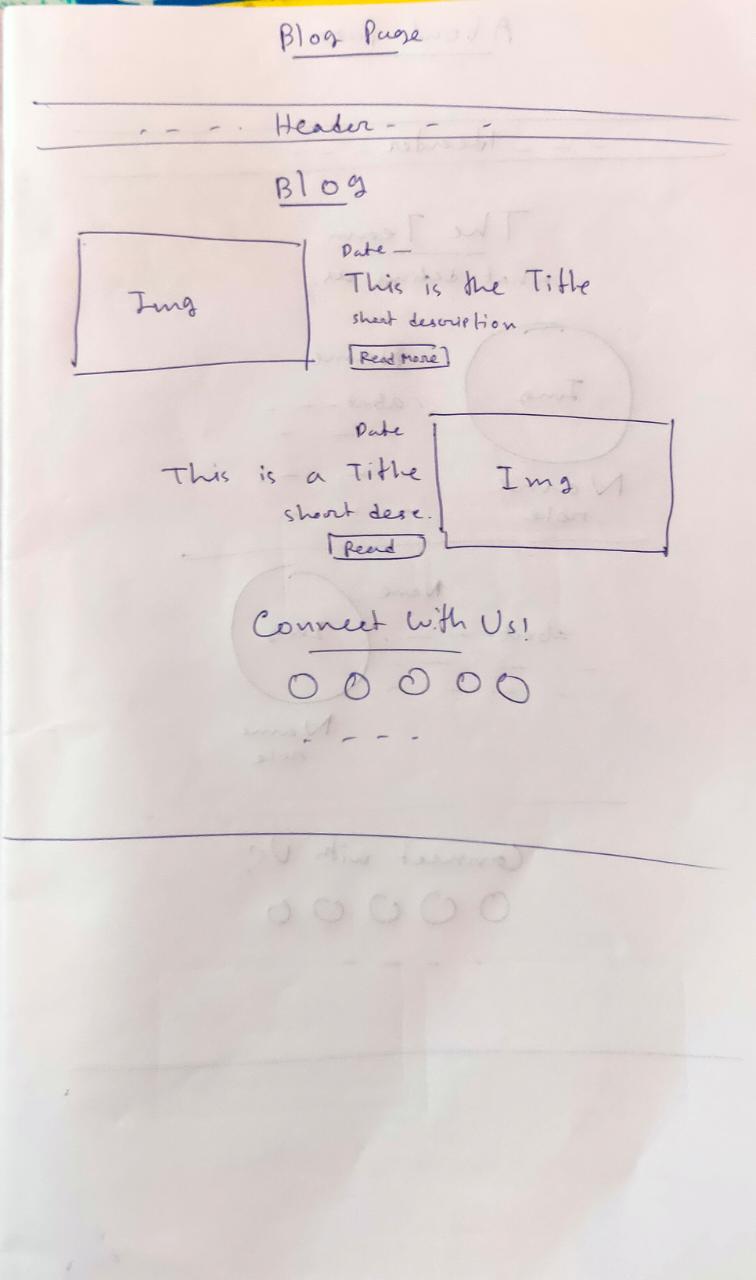 Blog Page
- - - . Header - - -
Blog
Img
Date —
This is the Title
short description
Read More
Date
This is a Title
short desc.
Read
Img
Connect With Us!